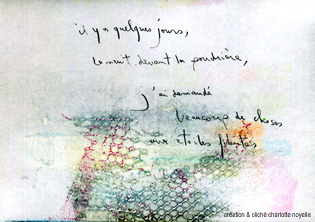 il y a quelques jours,
la nuit, devant la poudrière,
j'ai demandé
beaucoup de choses
aux étoiles plantées
création & cliché charlotte noyelle